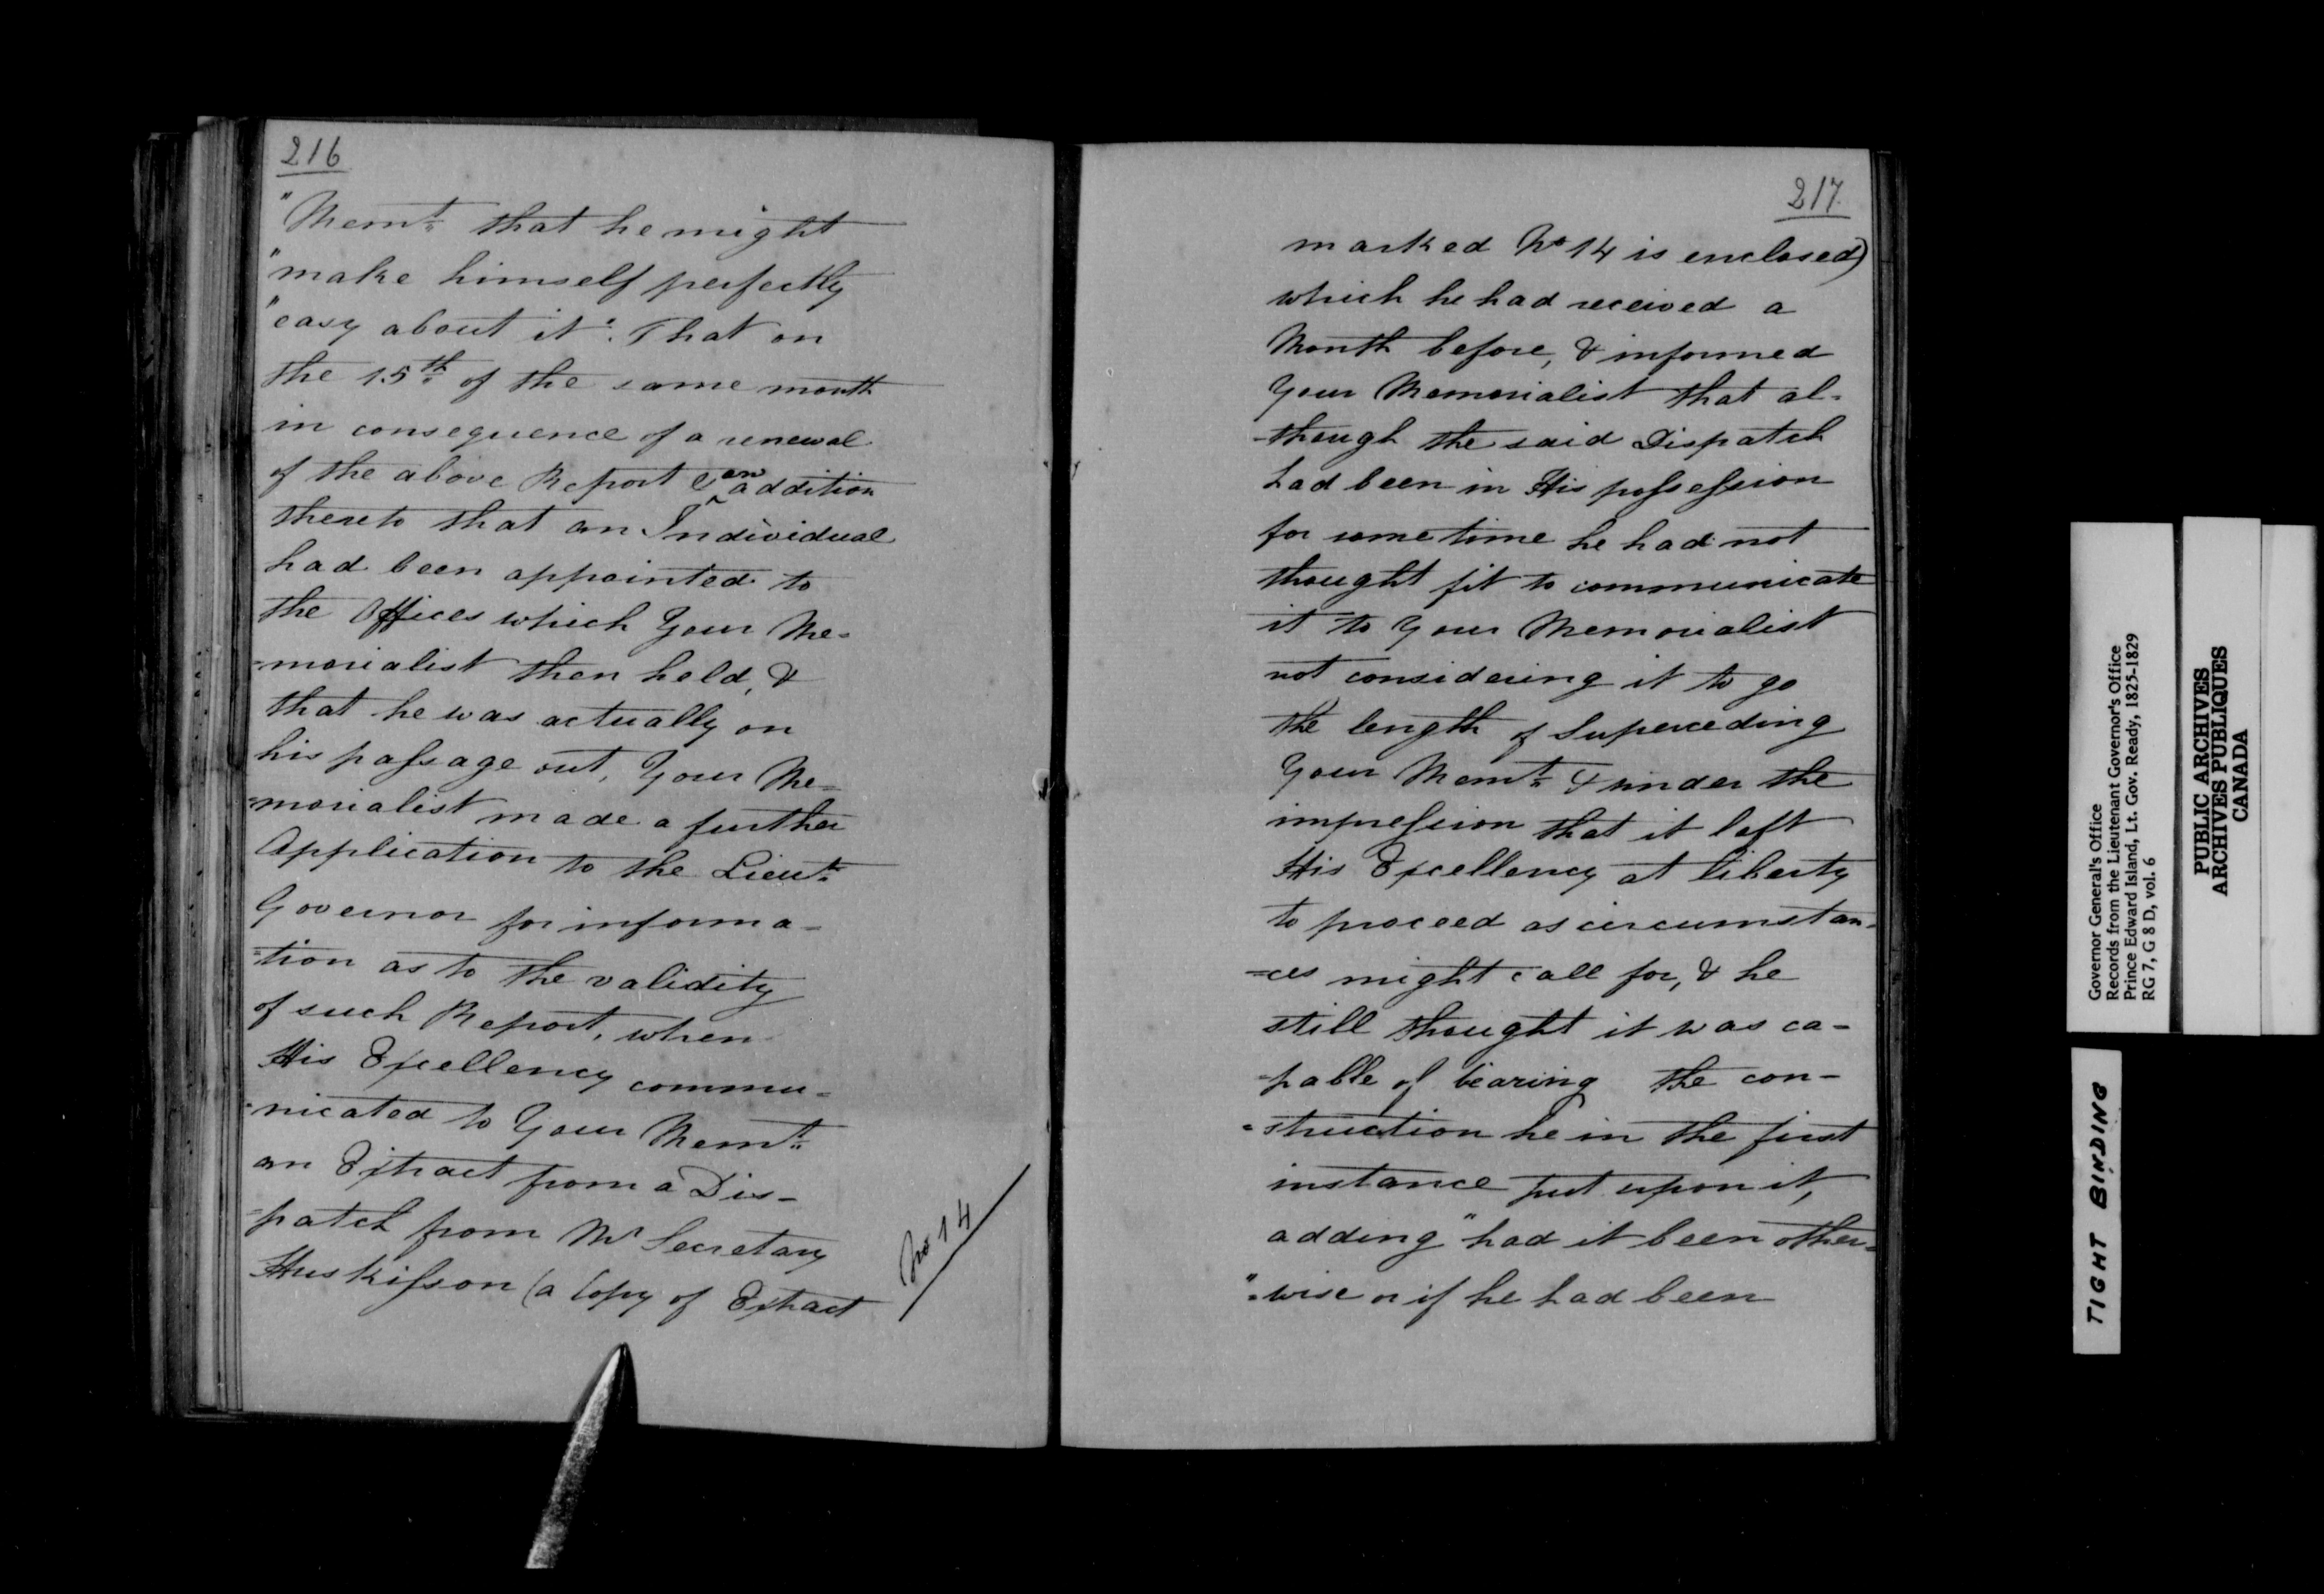 216
"Memt. that he might
"make himself perfectly
"easy about it". That on
the 15th. of the same month
in consequence of a renewal
of the above Report & an addition
thereto that an Individual
had been appointed to
the Offices which Your Me=
=morialist then held, &
that he was actually on
his passage out, Your Me=
=morialist made a further
Application to the Lieut.
Governor for informa=
=tion as to the validity
of such Report, when
His Excellency commu=
=nicated to Your Memt.
an Extract from a Dis-
=patch from Mr Secretary
Huskisson (a Copy of Extract
No 14
217
marked No 14 is enclosed)
which he had received a
Month before, & informed
Your Memorialist that al-
-though the said Dispatch
had been in His possession
for some time he had not
thought fit to communicate
it to Your Memorialist
not considering it to go
the length of Superceding
Your Memt. & under the
impression that it left
His Excellency at liberty
to proceed as circumstan=
=ces might call for, & he
still thought it was ca-
-pable of bearing the con-
=struction he in the first
instance put upon it,
adding "had it been other=
"=wise or if he had been
Governor General's Office
Records from the Lieutenant Governor's Office
Prince Edward Island, Lt. Gov. Ready, 1825-1829
RG 7, G 8 D, vol. 6
PUBLIC ARCHIVES
ARCHIVES PUBLIQUES
CANADA
TIGHT BINDING